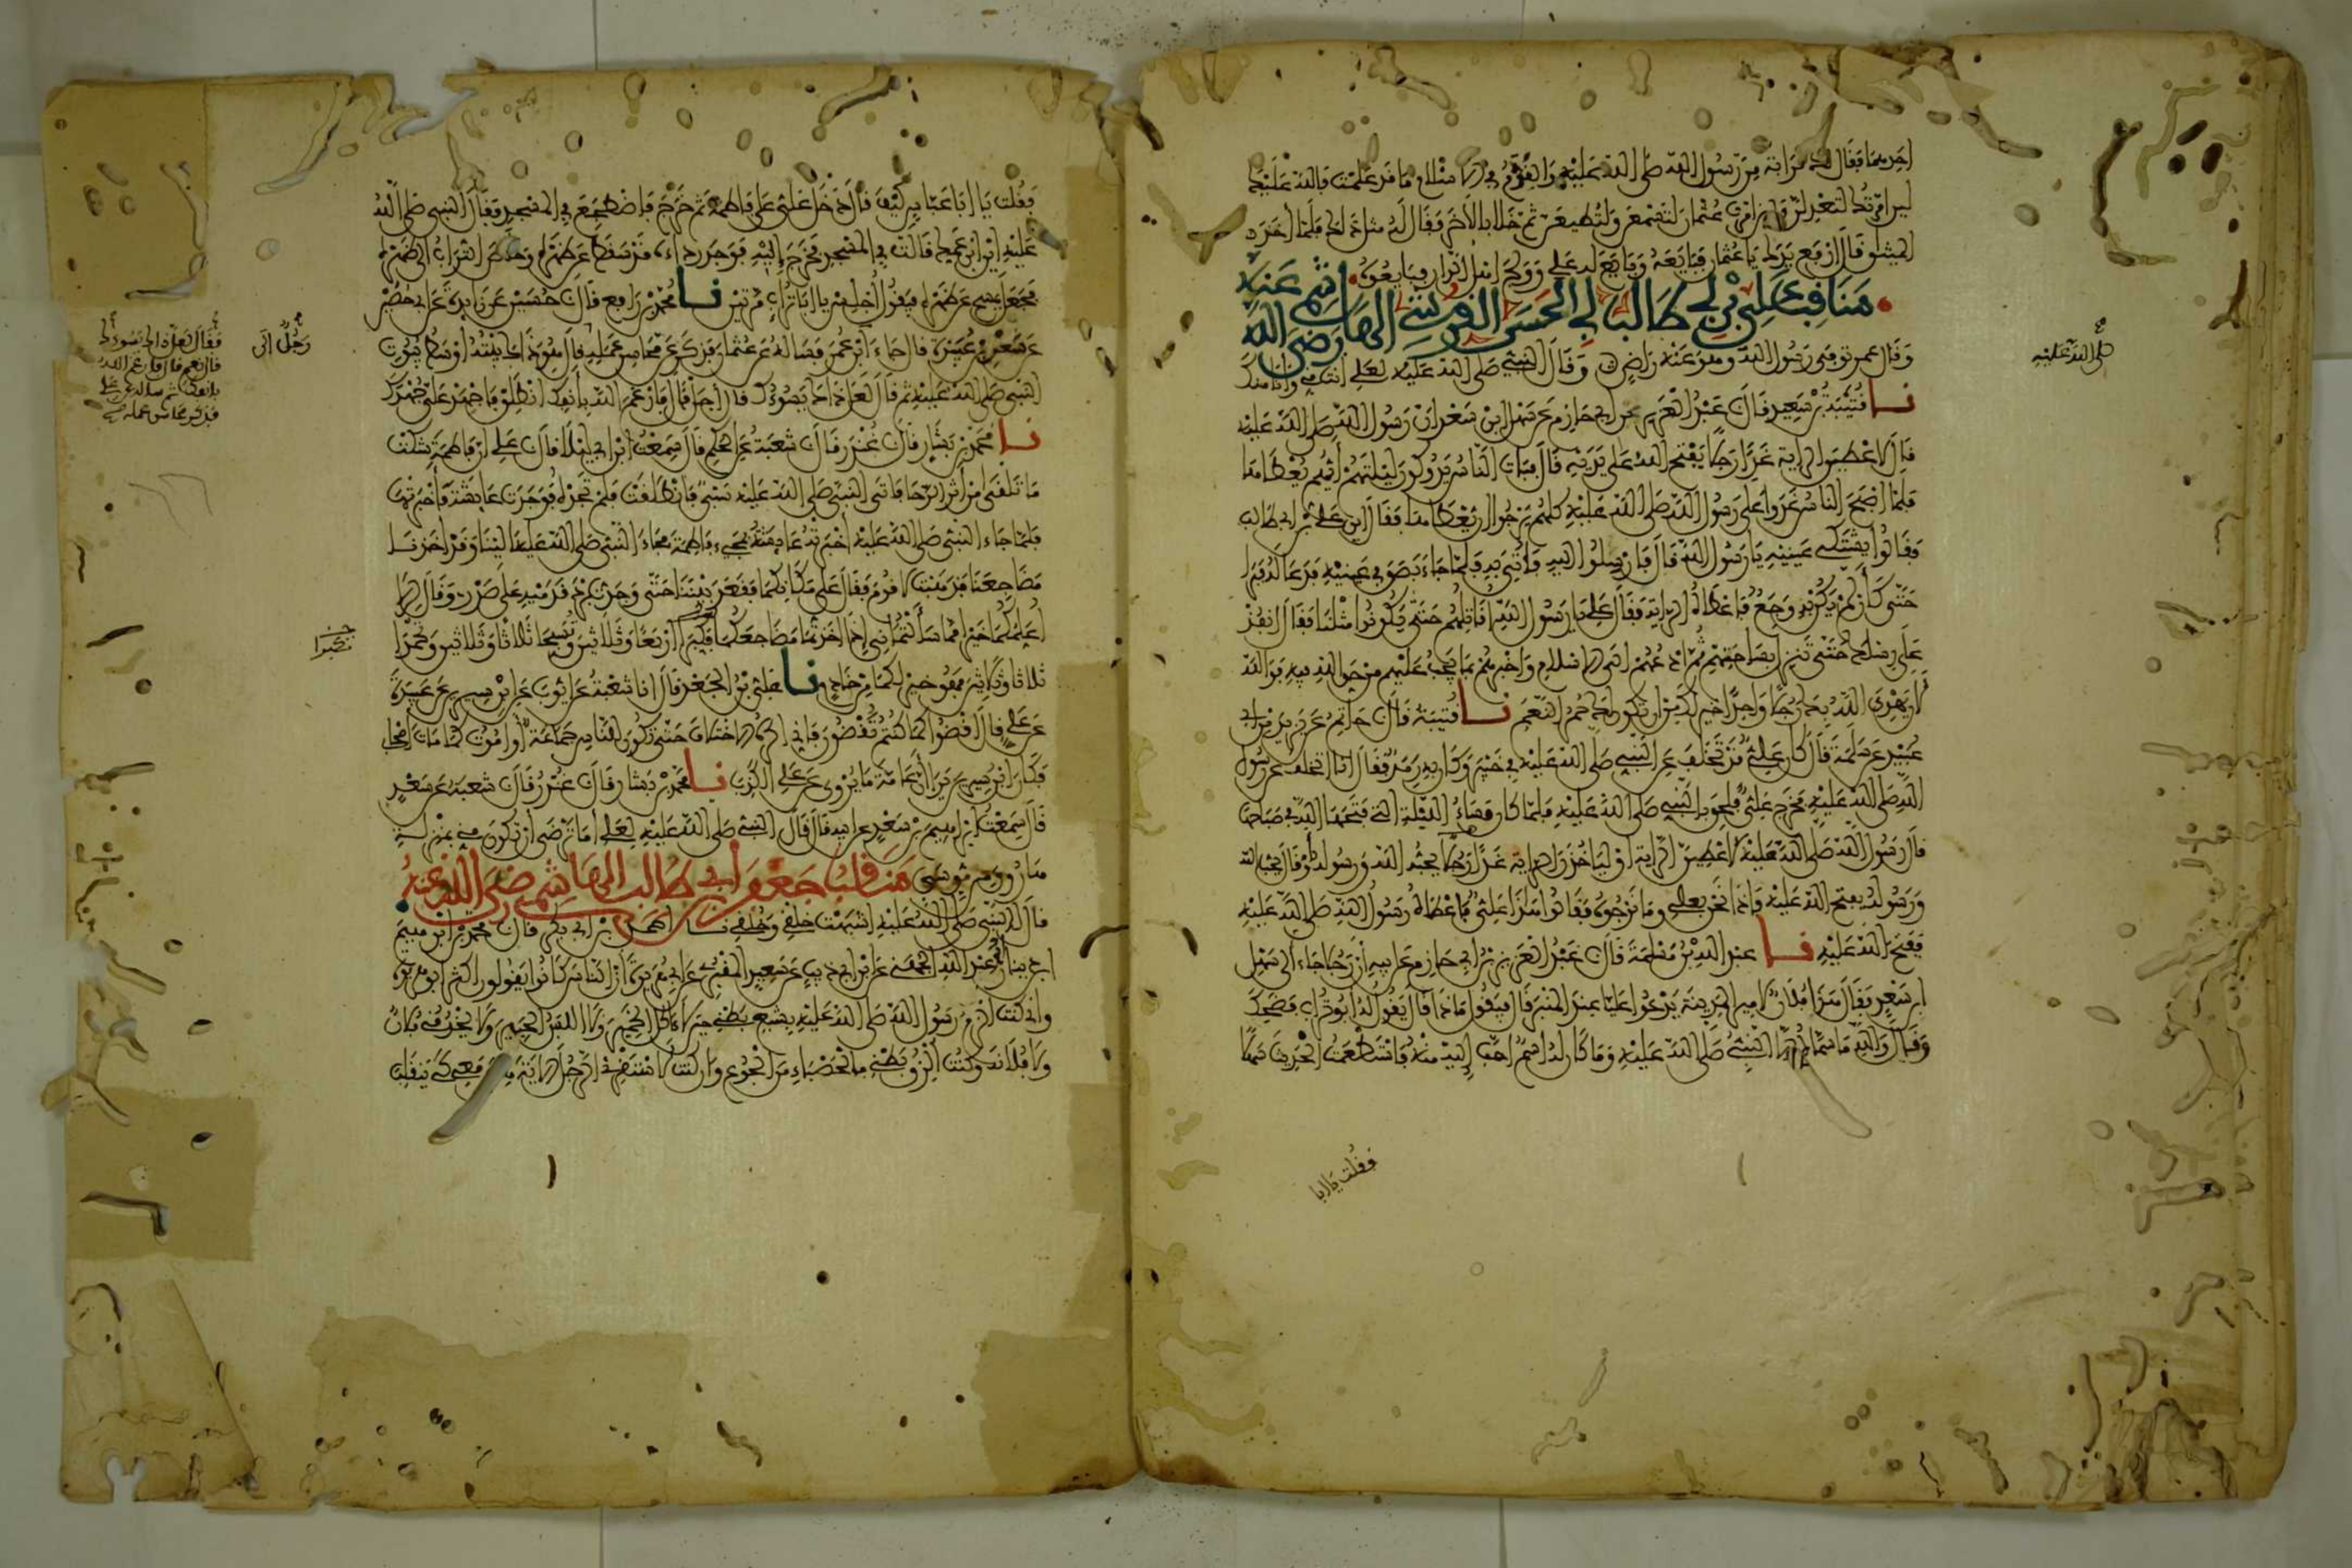 احدهما فقال لك قرابة من رسول الله صلى الله عليه والقدم في الاسلام ما قد علمت فالله عليك
لين امرتك لتعدلن ولين امرت عثمان لتسمعن ولتطيعن ثم خلا بالاخر فقال له مثل ذلك فلما اخذ
الميثاق قال ارفع يدك يا عثمان فبايعه وبايع له علي وولج اهل الدار فبايعوه
مناقب علي بن ابي طالب ابي الحسن القرشي الهاشمي رضي الله عنه
وقال عمر توفي رسول الله وهو عنه راض وقال النبي صلى الله عليه لعلي انت مني وانا منك
نا قتيبة بن سعيد قال عبد العزيز عن ابي حازم عن سهل ابن سعد ان رسول الله صلى الله عليه
قال لاعطين الراية غدا رجلا يفتح الله على يديه قال فبات الناس يدوكون ليلتهم ايهم يعطاها
فلما اصبح الناس غدوا على رسول الله صلى الله عليه كلهم يرجوا ان يعطاها فقال اين علي بن ابي طالب
فقالوا يشتكي عينيه يا رسول الله قال فارسلوا اليه فاتي به فلما جاء بصق في عينيه فدعا له فبرا
حتى كان لم يكن به وجع فاعطاه الراية فقال علي يا رسول الله اقاتلهم حتى يكونوا مثلنا فقال انفذ
على رسلك حتى تنزل بساحتهم ثم ادعهم الى الاسلام واخبرهم بما يجب عليهم من حق الله فيه فوالله
لان يهدي الله بك رجلا واحدا خير لك من ان يكون لك حمر النعم نا قتيبة قال حاتم عن يزيد بن ابي
عبيد عن سلمة قال كان علي قد تخلف عن النبي صلى الله عليه في خيبر وكان به رمد فقال انا اتخلف عن رسول
الله صلى الله عليه فخرج علي فلحق بالنبي صلى الله عليه فلما كان مساء الليلة التي فتحها الله في صباحها
قال رسول الله صلى الله عليه لاعطين الراية او لياخذن الراية غدا رجلا يحبه الله ورسوله او قال يحب الله
ورسوله يفتح الله عليه فاذا نحن بعلي وما نرجوه فقالوا هذا علي فاعطاه رسول الله صلى الله عليه
ففتح الله عليه نا عبد الله بن مسلمة قال عبد العزيز بن ابي حازم عن ابيه ان رجلا جاء الى سهل
ابن سعد فقال هذا فلان امير المدينة يدعوا عليا عند المنبر قال فيقول ماذا قال يقول له ابو تراب فضحك
وقال والله ما سماه الا النبي صلى الله عليه وما كان له اسم احب اليه منه فاستطعمت الحديث سهلا
صلى الله عليه
فقلت يا ابا
فقلت يا ابا عباس كيف قال دخل علي على فاطمة ثم خرج فاضطجع في المسجد فقال النبي صلى الله
عليه اين ابن عمك قالت في المسجد فخرج اليه فوجد رداءه قد سقط عن ظهره وخلص التراب الى ظهره
فجعل يمسح عن ظهره فيقول اجلس يا ابا تراب مرتين نا محمد بن رافع قال حسين عن زايدة عن ابي حصين
عن سعد بن عبيدة قال جاء الى ابن عمر فساله عن عثمان فذكر عن محاسن عمله قال هو ذاك بيته اوسط بيوت
النبي صلى الله عليه ثم قال لعل ذاك يسوءك قال اجل قال فارغم الله بانفك انطلق فاجهد علي جهدك
نا محمد بن بشار قال غندر قال شعبة عن الحكم قال سمعت ابن ابي ليلى قال علي ان فاطمة شكت
ما تلقى من اثر الرحا فاتى النبي صلى الله عليه سبي فانطلقت فلم تجده فوجدت عايشة فاخبرتها
فلما جاء النبي صلى الله عليه اخبرته عايشة بمجيء فاطمة فجاء النبي صلى الله عليه الينا وقد اخذنا
مضاجعنا فذهبت لاقوم فقال على مكانكما فقعد بيننا حتى وجدت برد قدميه على صدري وقال الا
اعلمكما خيرا مما سالتماني اذا اخذتما مضاجعكما فكبرا اربعا وثلاثين وتسبحا ثلاثا وثلاثين وتحمدا
ثلاثا وثلاثين فهو خير لكما من خادم نا علي بن الجعد قال انا شعبة عن ايوب عن ابن سيرين عن عبيدة
عن علي قال اقضوا كما كنتم تقضون فاني اكره الاختلاف حتى يكون الناس جماعة او اموت كما مات اصحابي
فكان ابن سيرين يرى ان عامة ما يروى عن علي الكذب نا محمد بن بشار قال غندر قال شعبة عن سعد
قال سمعت ابراهيم بن سعد عن ابيه قال قال النبي صلى الله عليه لعلي اما ترضى ان تكون مني بمنزلة
هارون من موسى مناقب جعفر بن ابي طالب الهاشمي رضي الله عنه
قال له النبي صلى الله عليه اشبهت خلقي وخلقي نا احمد بن ابي بكر قال محمد بن ابراهيم
ابن دينار ابو عبد الله الجهني عن ابن ابي ذيب عن سعيد المقبري عن ابي هريرة ان الناس كانوا يقولون اكثر ابو هريرة
واني كنت الزم رسول الله صلى الله عليه بشبع بطني حين لا اكل الخمير ولا البس الحبير ولا يخدمني فلان
ولا فلانة وكنت الزق بطني بالحصباء من الجوع وان كنت لاستقرئ الرجل الاية هي معي كي ينقلب
رجل الى
فكبرا